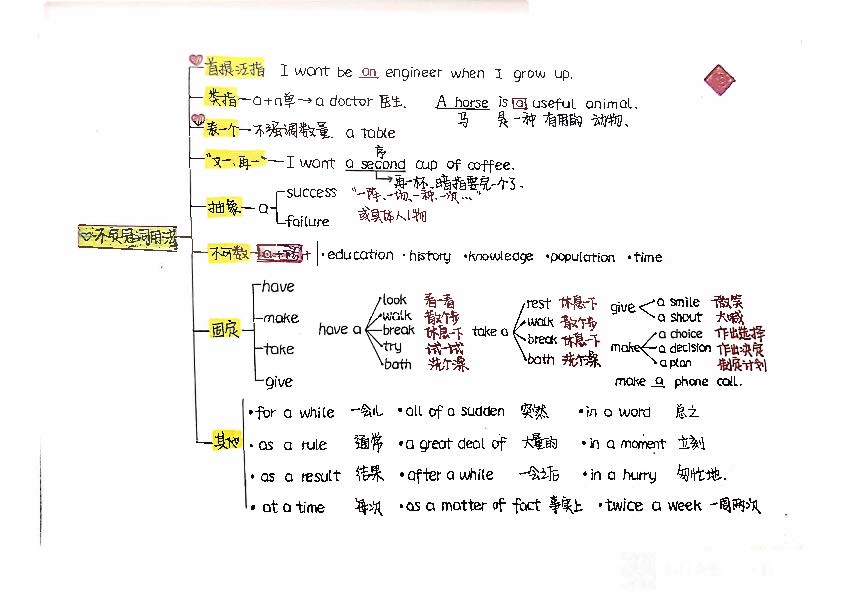 首提泛指 I want be an engineer when I grow up.
类指 a+n单→a doctor 医生. A horse is a useful animal.
马 是一种 有用的 动物、
表一个 不强调数量. a table
序
"又一、再一" I want a second cup of coffee.
再一杯、暗指要完一个了.
抽象 a success "一阵、一场、一种、一次..."
failure 或具体人/物
不定冠词用法
不可数 ·education ·history ·knowledge ·population ·time
固定
have
make
take
give
have a
look 看一看
walk 散个步
break 休息一下
try 试一试
bath 洗个澡
take a
rest 休息一下
walk 散个步
break 休息一下
bath 洗个澡
give
a smile 微笑
a shout 大喊
make
a choice 作出选择
a decision 作出决定
a plan 制定计划
make a phone call.
其他
·for a while 一会儿 ·all of a sudden 突然 ·in a word 总之
·as a rule 通常 ·a great deal of 大量的 ·in a moment 立刻
·as a result 结果 ·after a while 一会之后 ·in a hurry 匆忙地.
·at a time 每次 ·as a matter of fact 事实上 ·twice a week 一周两次